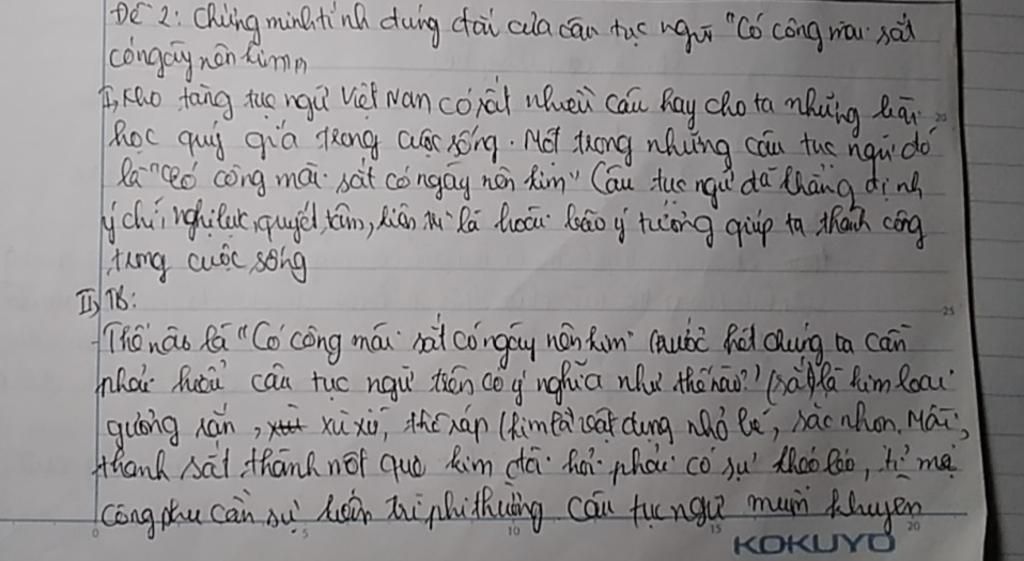 Đề 2: Chứng minh tính đúng đắn của câu tục ngữ "Có công mài sắt
có ngày nên kim"
I, Kho tàng tục ngữ Việt Nam có rất nhiều câu hay cho ta những bài
học quý giá trong cuộc sống. Một trong những câu tục ngữ đó
là "Có công mài sắt có ngày nên kim" Câu tục ngữ đã khẳng định
ý chí, nghị lực, quyết tâm, kiên trì là hoài bão ý tưởng giúp ta thành công
trong cuộc sống
II, TB:
- Thế nào là "Có công mài sắt có ngày nên kim" trước hết chúng ta cần
phải hiểu câu tục ngữ trên có ý nghĩa như thế nào? (sắt) là kim loại
cứng rắn, xù xì, thô ráp (kim là vật dụng nhỏ bé, sắc nhọn. Mài
thanh sắt thành một que kim đòi hỏi phải có sự khéo léo, tỉ mỉ
công phu cần sự kiên trì phi thường Câu tục ngữ muốn khuyên
0 5 10 15 20
25
KOKUYO